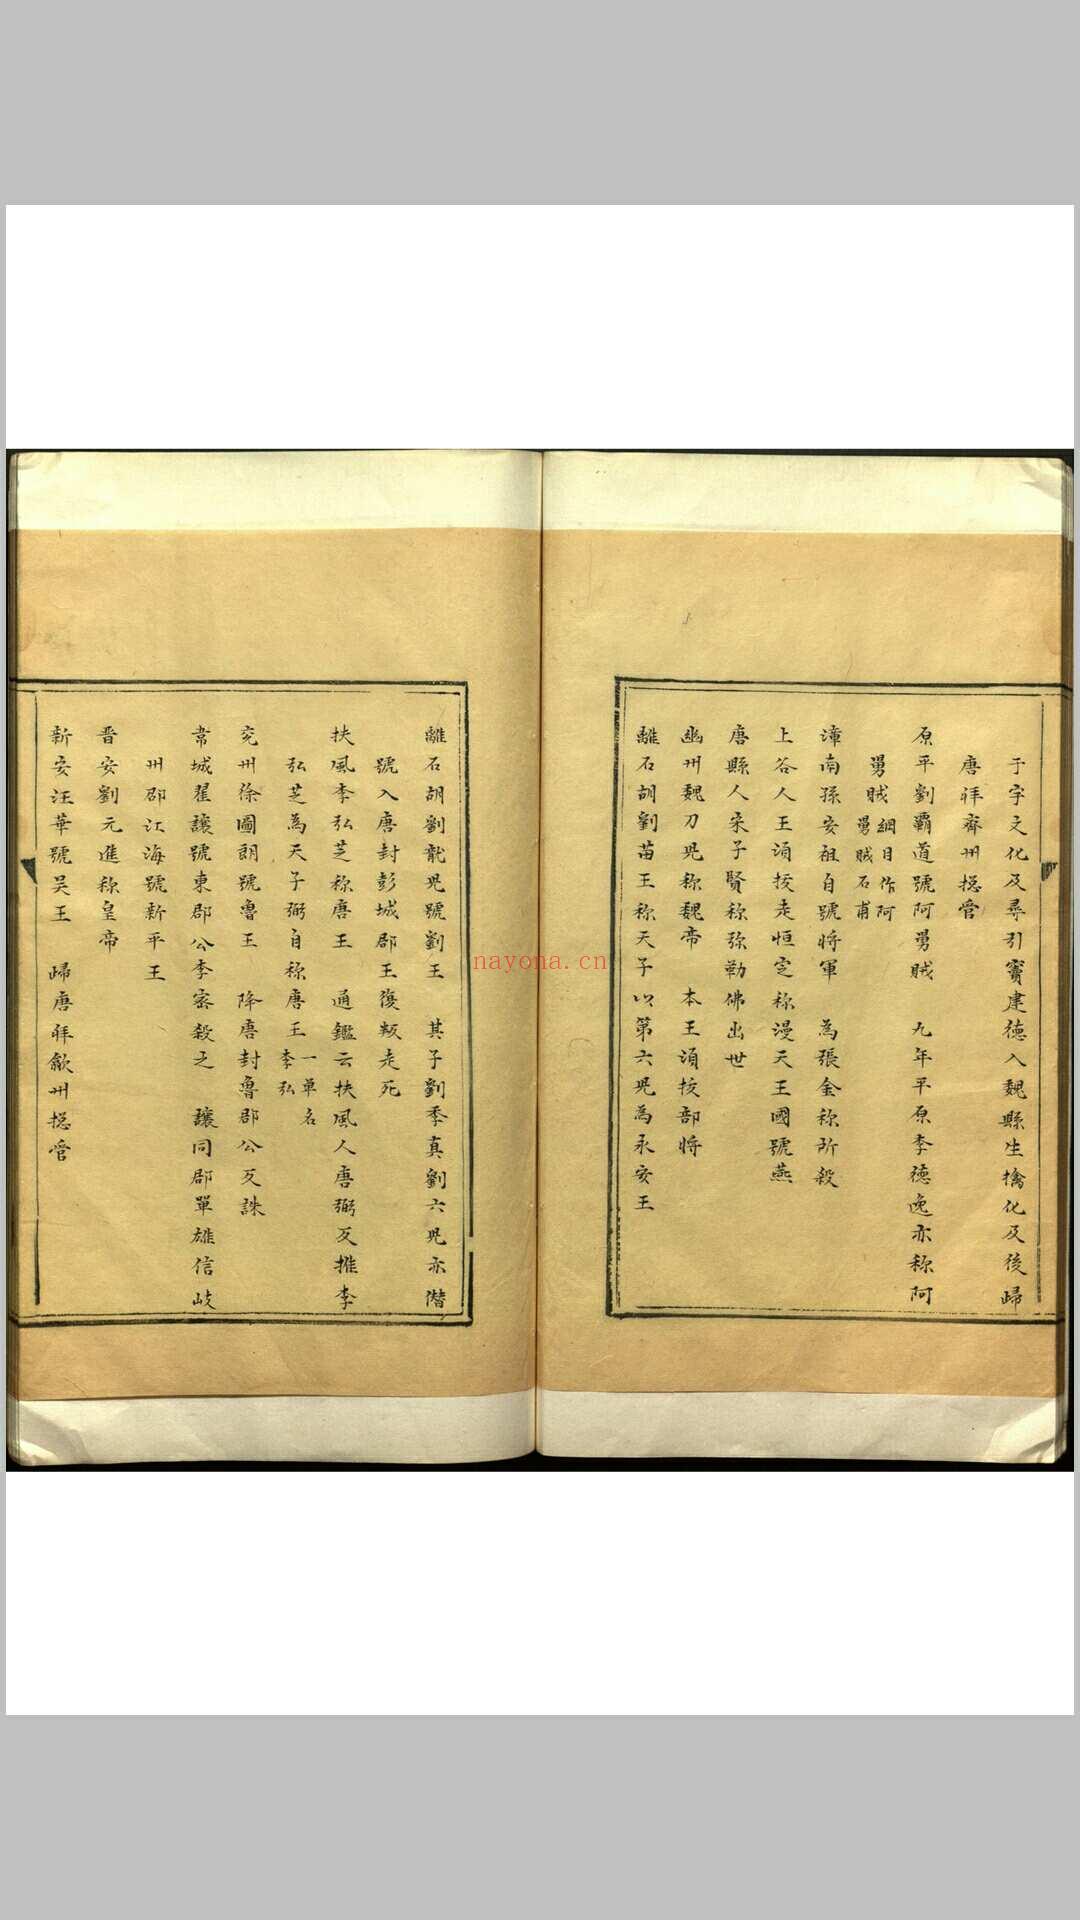 于宇文化及尋引竇建徳入魏縣生擒化及後歸
唐拜齊州揔管
原平劉霸道號阿舅賊　九年平原李徳逸亦称阿
舅賊綱目作阿舅賊石甫
漳南孫安祖自號将軍　為張金称所殺
上谷人王湏拔走恒定称漫天王國號燕
唐縣人宋子賢称弥勒佛出世
幽州魏刀兒称魏帝　本王湏拔部将
離石胡劉苗王称天子以第六兒為永安王
離石胡劉龍兒號劉王　其子劉季真劉六兒亦僣
號入唐封彭城郡王復叛走死
扶風李弘芝称唐王　通鑑云扶風人唐弼反推李
弘芝為天子弼自称唐王一單名李弘
兖州徐圎朗號魯王　降唐封魯郡公反誅
韋城翟讓號東郡公李宻殺之　讓同郡單雄信岐
州郡江海號新平王
晋安劉元進称皇帝
新安汪華號吴王　歸唐拜歙州揔管
nayona.cn